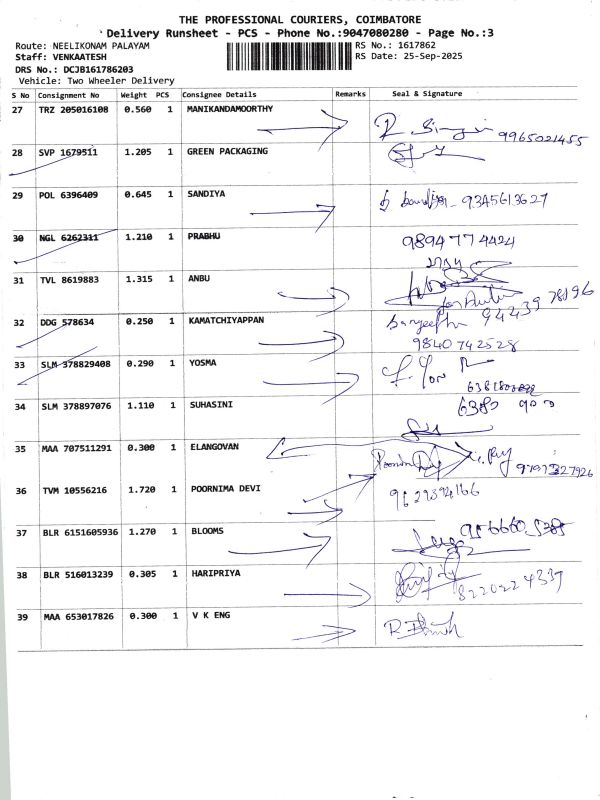 THE PROFESSIONAL COURIERS, COIMBATORE
Delivery Runsheet - PCS - Phone No.:9047080280 - Page No.:3
Route: NEELIKONAM PALAYAM RS No.: 1617862
Staff: VENKAATESH RS Date: 25-Sep-2025
DRS No.: DCJB161786203
Vehicle: Two Wheeler Delivery
S No Consignment No Weight PCS Consignee Details Remarks Seal & Signature
27 TRZ 205016108 0.560 1 MANIKANDAMOORTHY
9965021455
28 SVP 1679511 1.205 1 GREEN PACKAGING
29 POL 6396409 0.645 1 SANDIYA
9345613627
30 NGL 6262311 1.210 1 PRABHU
9894774424
31 TVL 8619883 1.315 1 ANBU
94439 78196
32 DDG 578634 0.250 1 KAMATCHIYAPPAN
Sangeetha
9840742528
33 SLM 378829408 0.290 1 YOSMA
34 SLM 378897076 1.110 1 SUHASINI
35 MAA 707511291 0.300 1 ELANGOVAN
36 TVM 10556216 1.720 1 POORNIMA DEVI
37 BLR 6151605936 1.270 1 BLOOMS
38 BLR 516013239 0.305 1 HARIPRIYA
8220224339
39 MAA 653017826 0.300 1 V K ENG